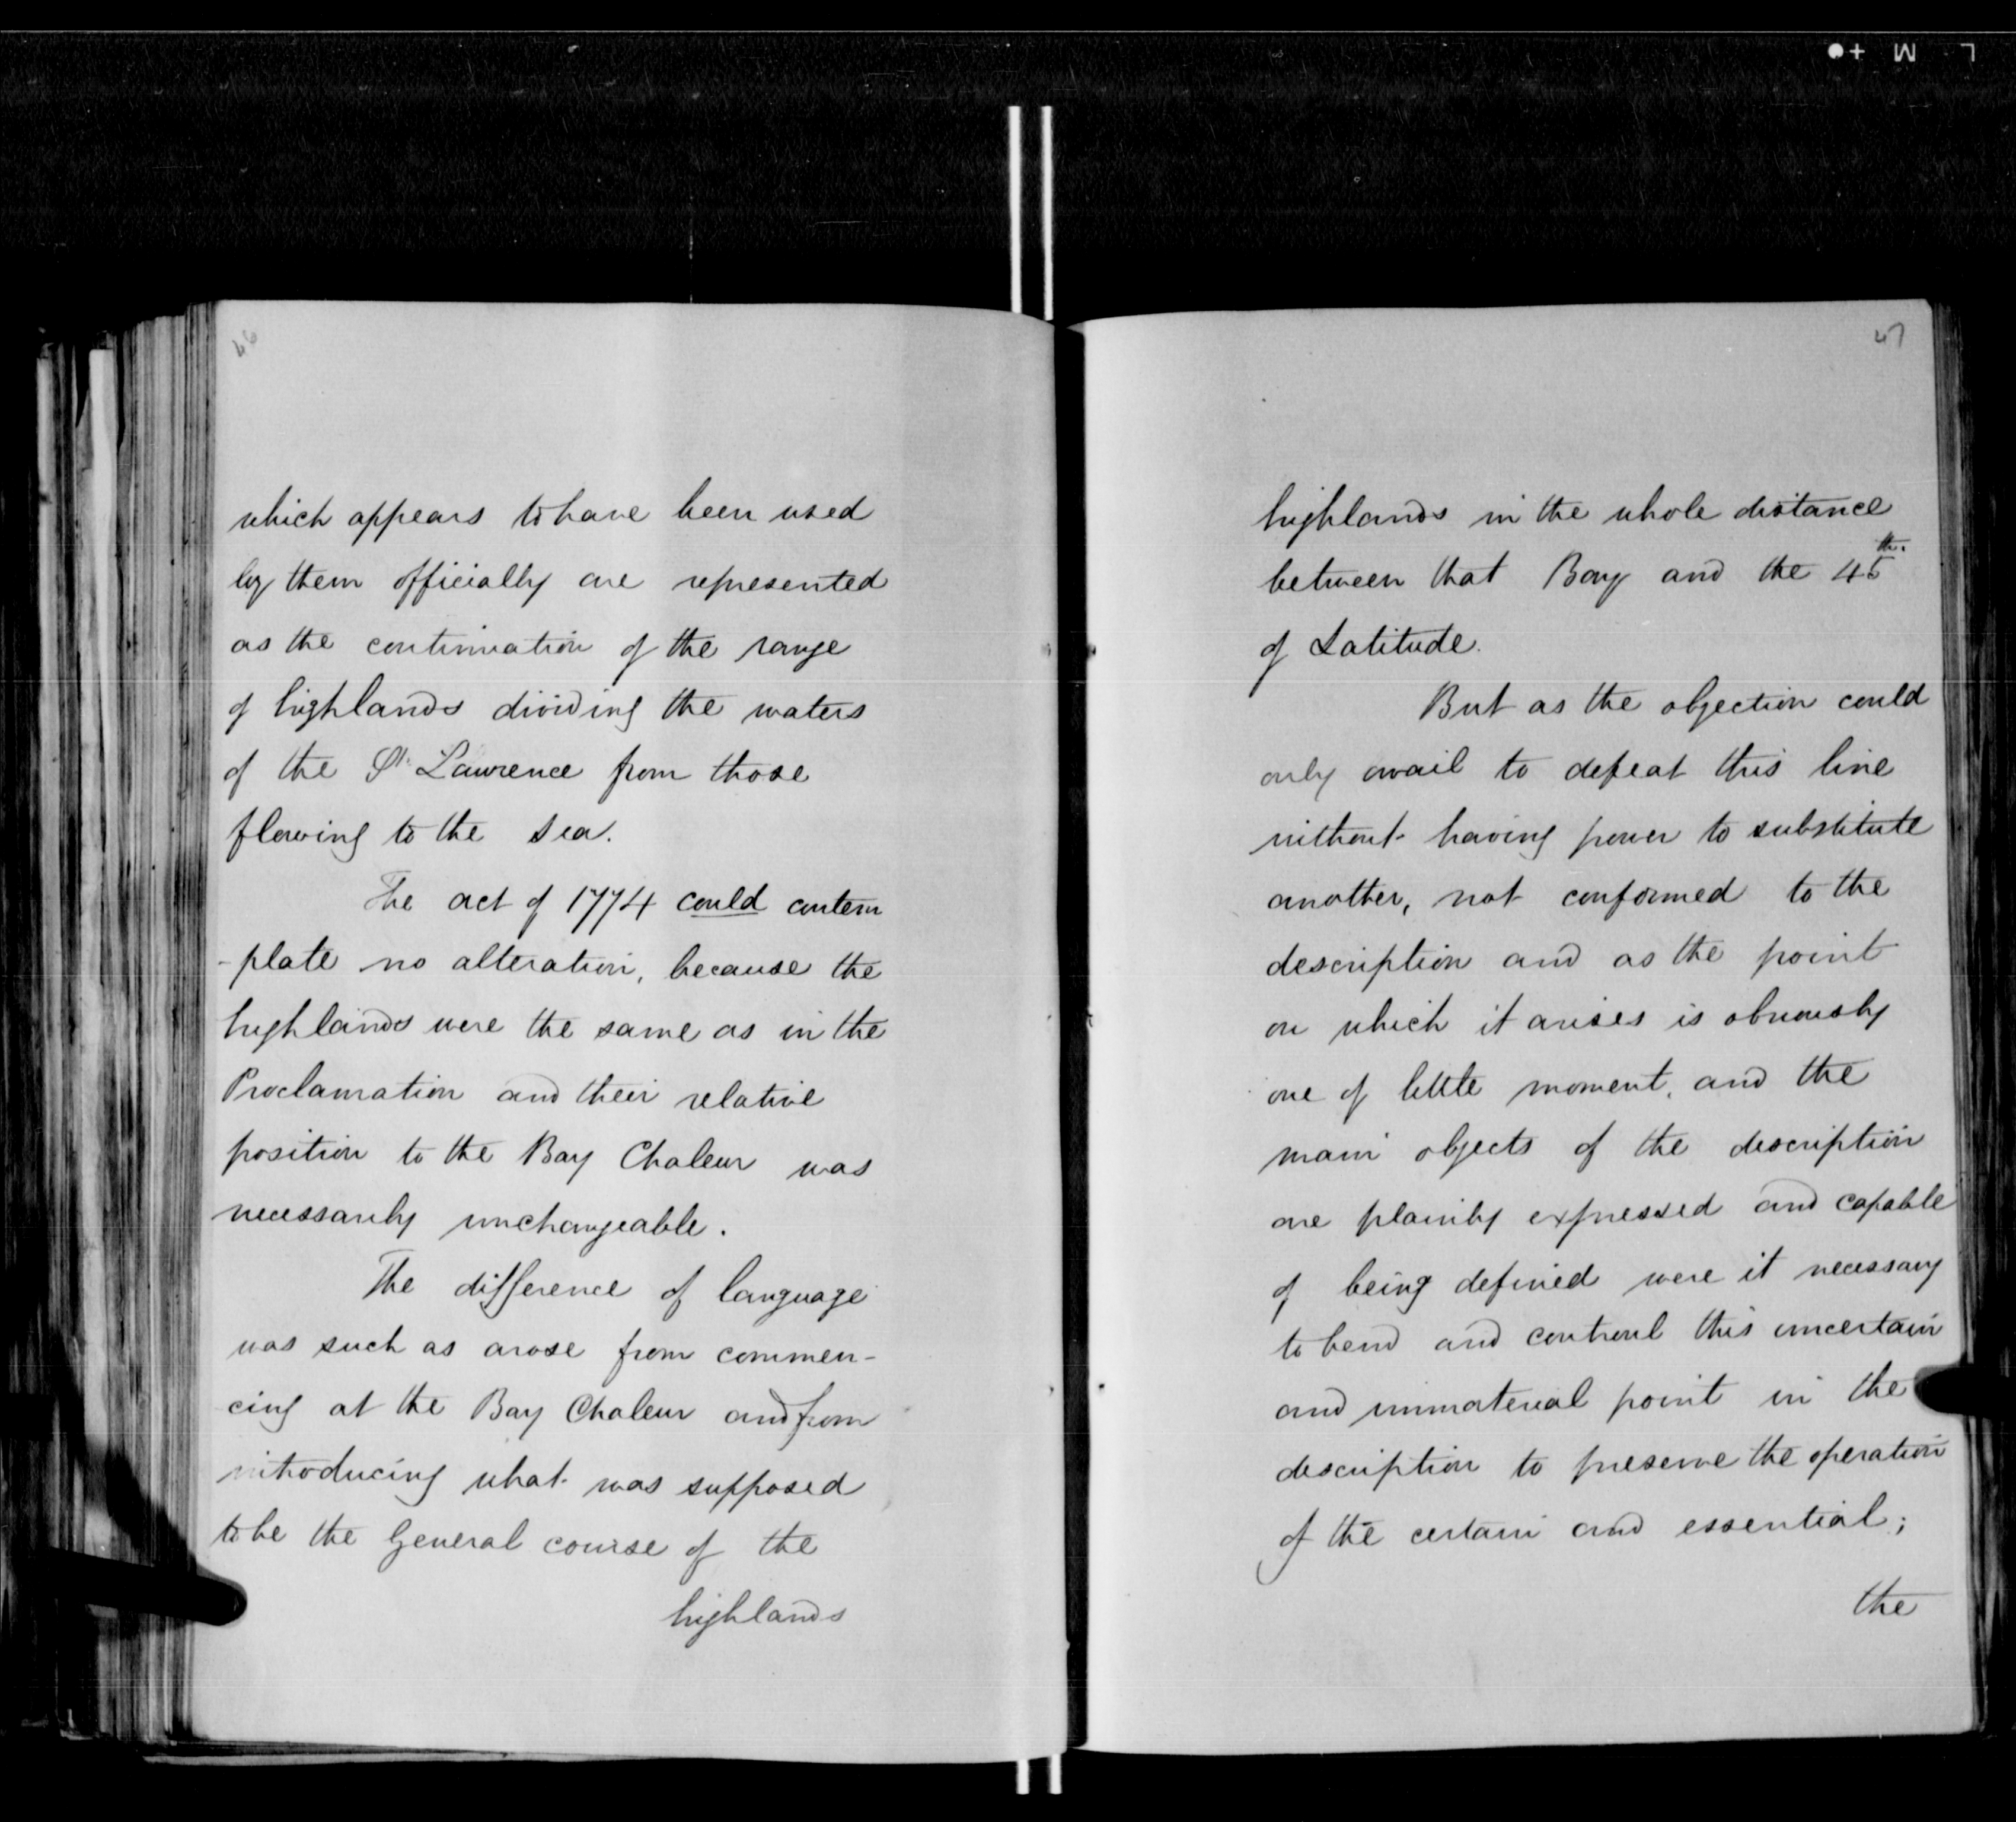 46
which appears to have been used
by them officially are represented
as the continuation of the range
of highlands dividing the waters
of the St. Lawrence from those
flowing to the sea.
The act of 1774 could contem
-plate no alteration, because the
highlands were the same as in the
Proclamation and their relative
position to the Bay Chaleur was
necessarily unchangeable.
The difference of language
was such as arose from commen-
cing at the Bay Chaleur and from
introducing what was supposed
to be the General course of the
highlands
47
highlands in the whole distance
between that Bay and the 45th.
of Latitude.
But as the objection could
only avail to defeat this line
without having power to substitute
another, not conformed to the
description and as the point
on which it arises is obviously
one of little moment, and the
main objects of the description
are plainly expressed and capable
of being defined were it necessary
to bend and controul this uncertain
and immaterial point in the
description to preserve the operation
of the certain and essential;
the
L M +